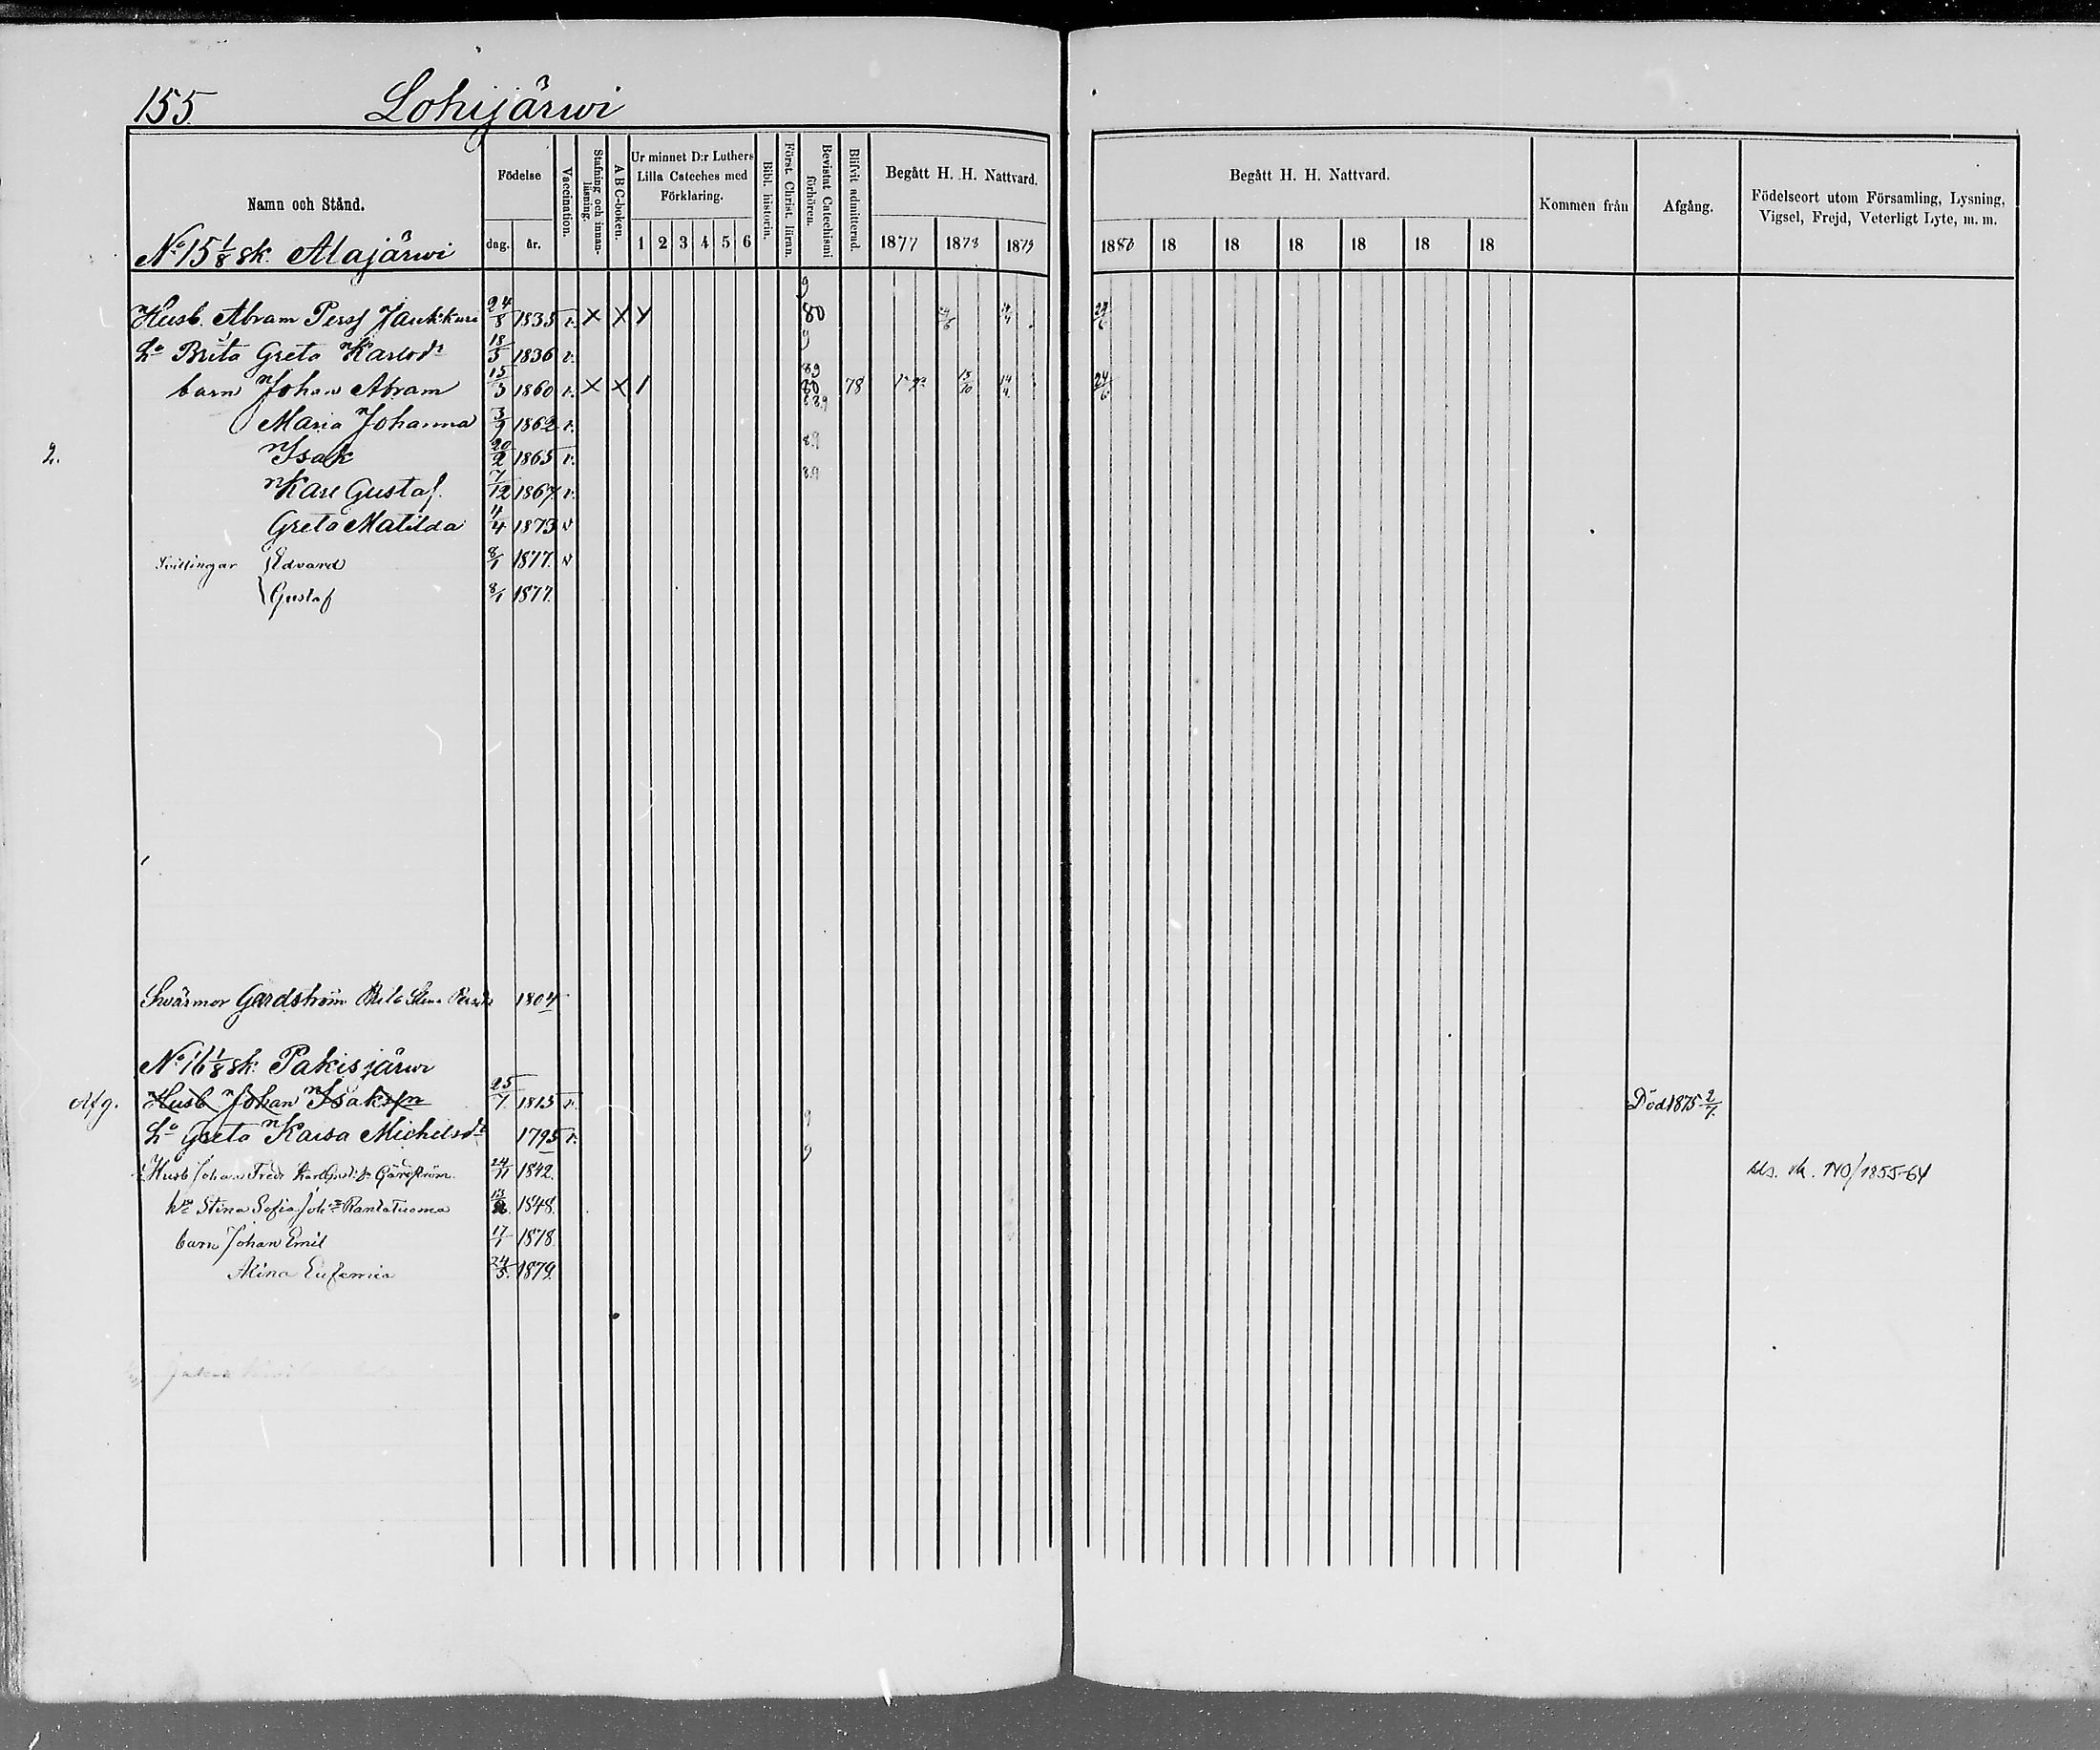 155. Lohijärwi
Namn och Stånd.
Födelse
dag. år.
Vaccination.
Stafning och innanläsning.
A B C-boken.
Ur minnet D:r Luthers
Lilla Cateches med
Förklaring.
1 2 3 4 5 6
Bibl. historin.
Först. Christ. läran.
Bevistat Catechismi
förhören.
Blifvit admitterad.
Begått H. H. Nattvard.
1877 1878 1879
Begått H. H. Nattvard.
1880 18 18 18 18 18 18
Kommen från
Afgång.
Födelseort utom Församling, Lysning,
Vigsel, Frejd, Veterligt Lyte, m. m.
No 15 1/8 sk. Alajärwi
9
Husb. Abram Perss Jaukkuri 24/8 1835 v. X X Y 80
Ho Brita Greta Karlsdr 18/5 1836 v. 9
barn Johan Abram 15/3 1860 v. X X 1 89 80 78 15/10 14/4 24/6
Maria Johanna 3/9 1862 v. 89
2. Isak 20/2 1865 v. 89
Karl Gustaf. 7/12 1867 v. 89
Greta Matilda 4/4 1873 v
Tvillingar Edvard 8/1 1877. v
Gustaf 8/1 1877.
Swärmor Gardström Brita Stina 1804
No 16 1/8 sk. Pakisjärwi
Afg. Husb Johan Isaksson 25/7 1815 v. Död 1875 2/7.
Ho Greta Kaisa Michelsdr 1795 v. 9
Husb Johan Fredr 24/11 1842. 9 170/1855-64
Ho Stina Sofia Rantatuoma 1848.
barn Johan Emil 17/1 1878
Alina Eufemia 24/5. 1879.